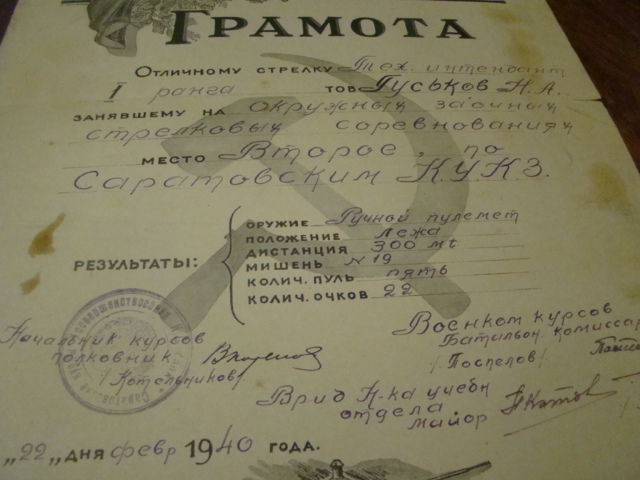 Грамота
Отличному стрелку Тех. интендант
I ранга тов Гуськов Н. А.
занявшему на окружных заочных
стрелковых соревнованиях
место Второе, по
Саратовским К.У.К.З.
Результаты:
оружие Ручной пулемет
положение Лежа
дистанция 300 mt
мишень N 19
колич. пуль пять
колич. очков 22
Начальник курсов
полковник
/Котельников/
Военком курсов
Батальон. комиссар
/Поспелов/
Врид Н-ка учебн
отдела
майор
„22" дня февр 1940 года.